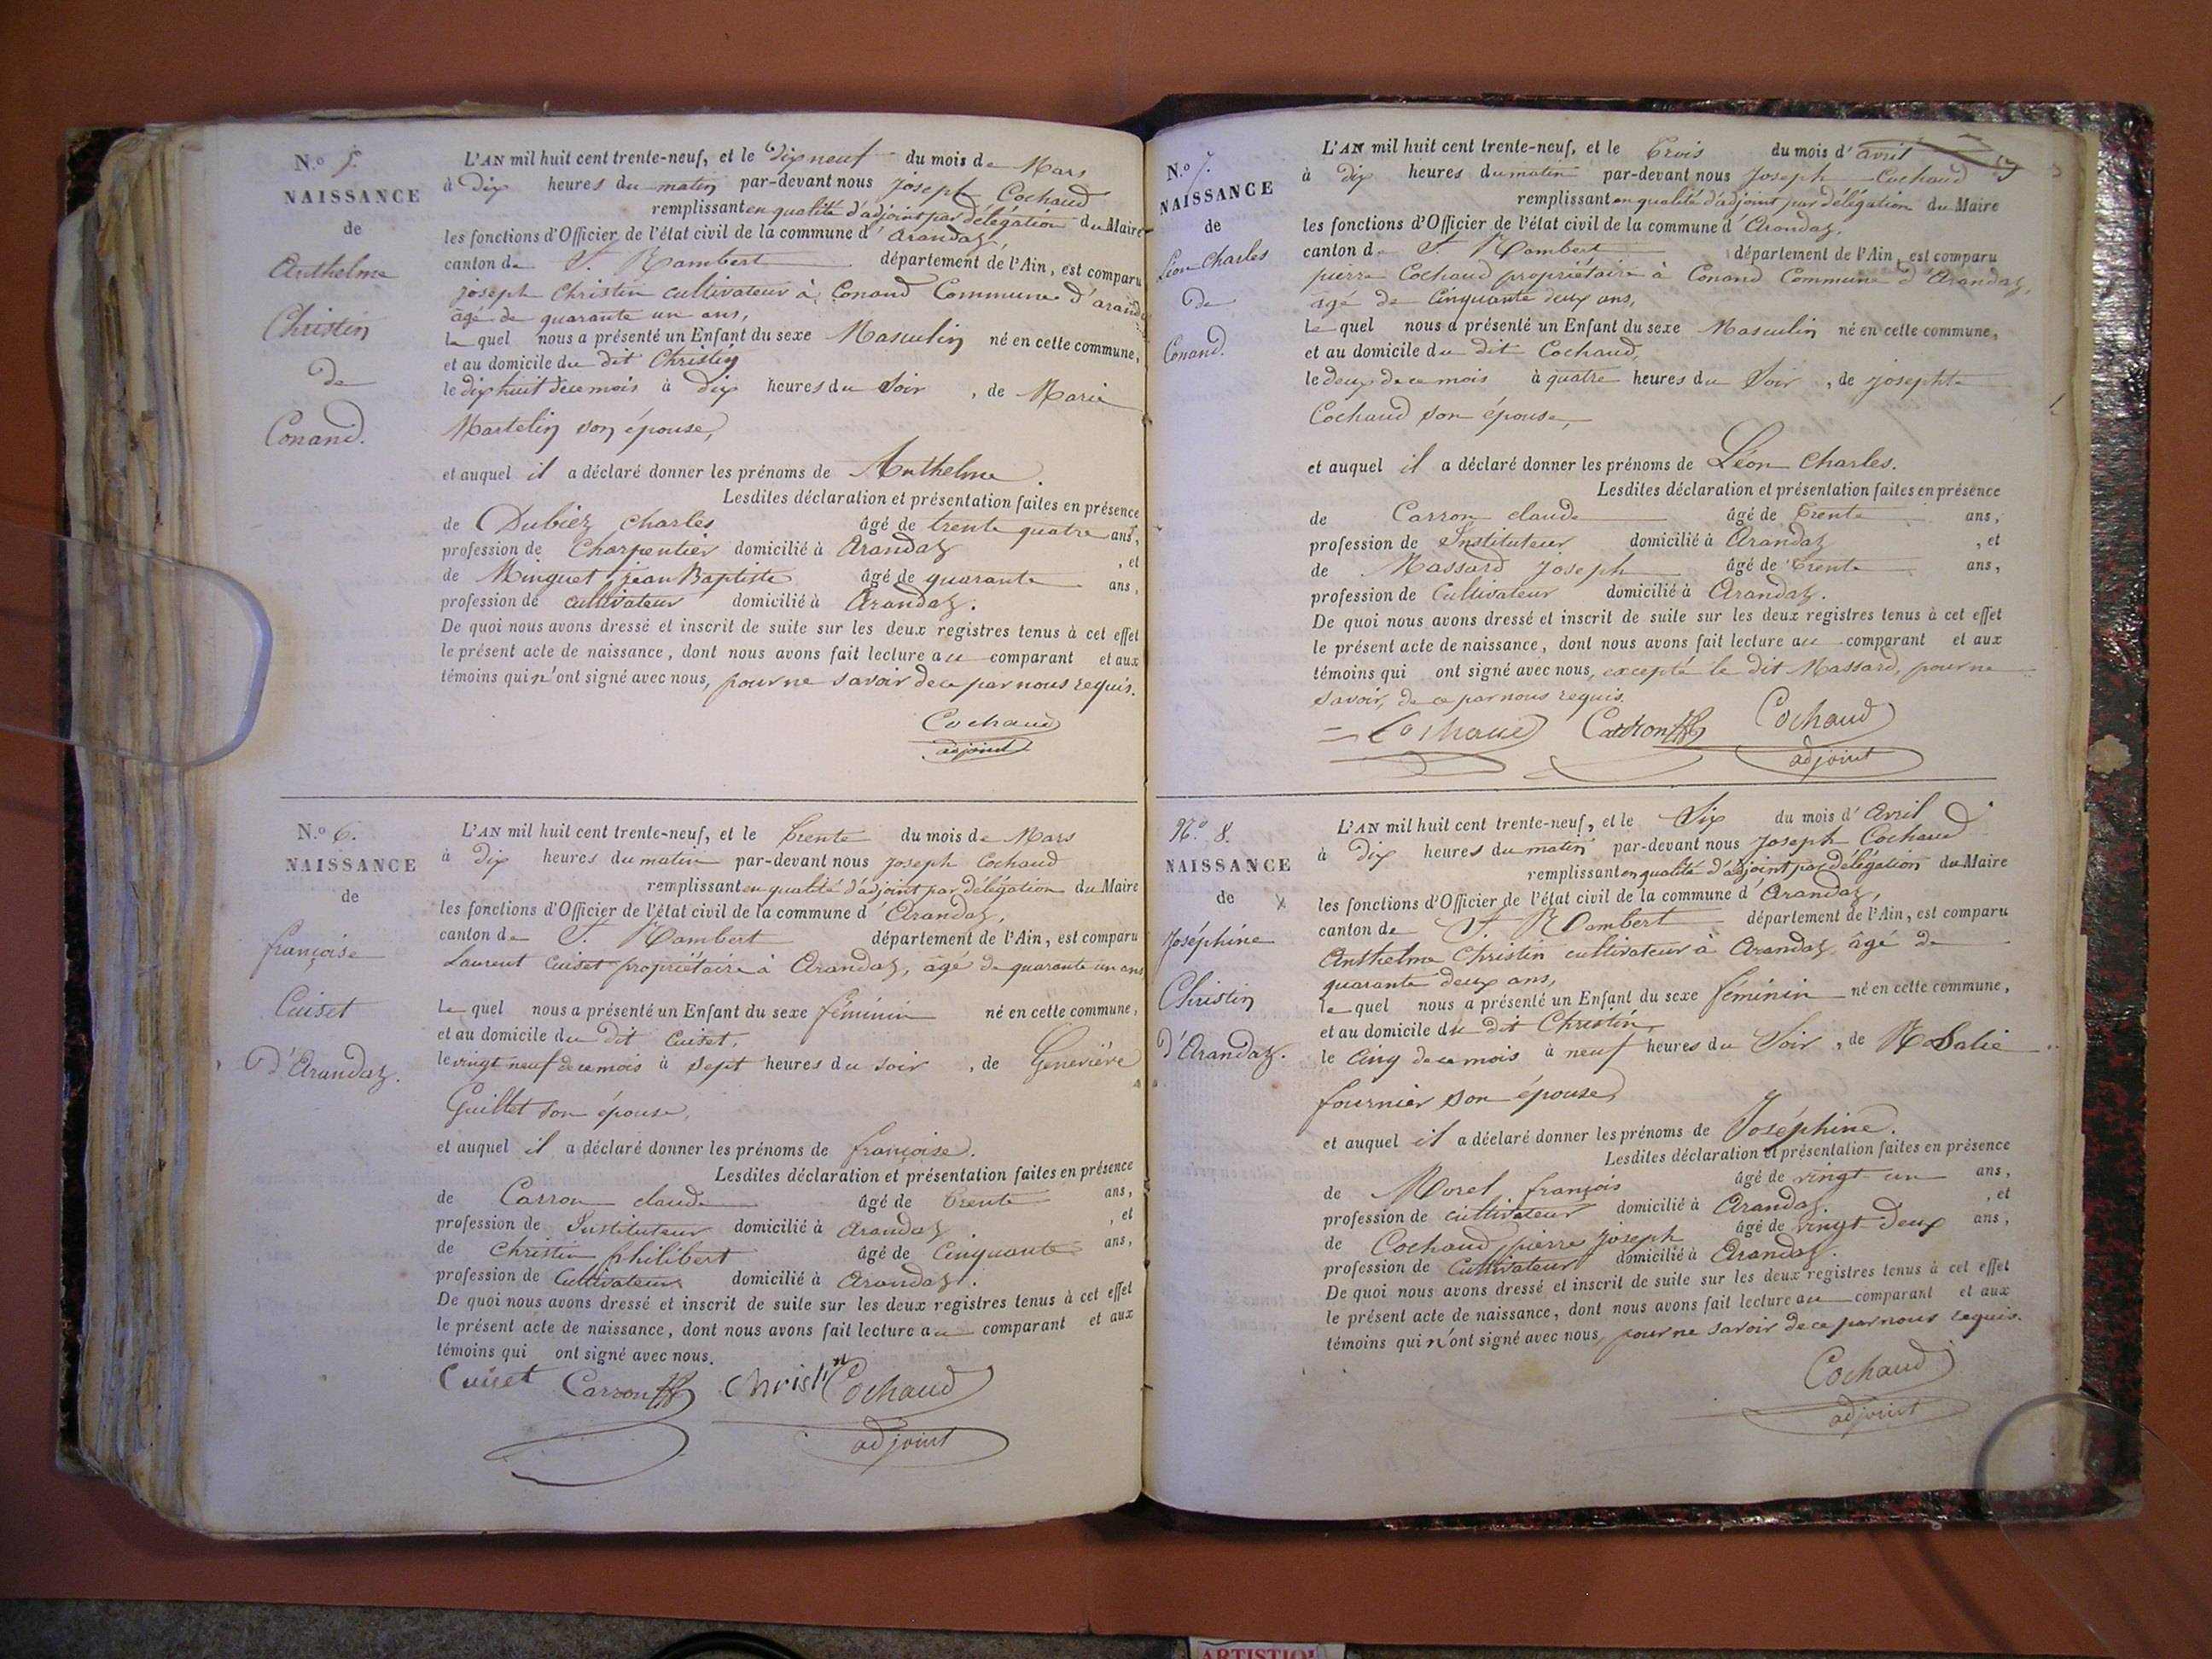 N.o 5.
NAISSANCE
de
Anthelme
Christin
de
Conand.
L'AN mil huit cent trente-neuf, et le dix neuf du mois de Mars
à dix heures du matin par-devant nous joseph Cochaud
remplissant en qualité d'adjoint par délégation du Maire
les fonctions d'Officier de l'état civil de la commune d'Arandaz,
canton de St. Rambert département de l'Ain, est comparu
joseph Christin cultivateur à Conand Commune d'arandaz
âgé de quarante un ans,
le quel nous a présenté un Enfant du sexe Masculin né en cette commune,
et au domicile du dit Christin
le dix huit de ce mois à dix heures du soir, de Marie
Martelin son épouse,
et auquel il a déclaré donner les prénoms de Anthelme.
Lesdites déclaration et présentation faites en présence
de Dubiez charles âgé de trente quatre ans,
profession de Charpentier domicilié à Arandaz, et
de Minguet jean Baptiste âgé de quarante ans,
profession de cultivateur domicilié à Arandaz.
De quoi nous avons dressé et inscrit de suite sur les deux registres tenus à cet effet
le présent acte de naissance, dont nous avons fait lecture au comparant et aux
témoins qui n'ont signé avec nous, pour ne savoir de ce par nous requis.
Cochaud
adjoint
N.o 6.
NAISSANCE
de
françoise
Cuiset
d'Arandaz.
L'AN mil huit cent trente-neuf, et le trente du mois de Mars
à dix heures du matin par-devant nous joseph Cochaud
remplissant en qualité d'adjoint par délégation du Maire
les fonctions d'Officier de l'état civil de la commune d'Arandaz,
canton de St. Rambert département de l'Ain, est comparu
Laurent Cuiset propriétaire à Arandaz, âgé de quarante un ans
le quel nous a présenté un Enfant du sexe féminin né en cette commune,
et au domicile du dit Cuiset,
le vingt neuf de ce mois à sept heures du soir, de Geneviève
Guillet son épouse,
et auquel il a déclaré donner les prénoms de françoise.
Lesdites déclaration et présentation faites en présence
de Carron claude âgé de trente ans,
profession de Instituteur domicilié à Arandaz, et
de christin philibert âgé de Cinquante ans,
profession de Cultivateur domicilié à Arandaz.
De quoi nous avons dressé et inscrit de suite sur les deux registres tenus à cet effet
le présent acte de naissance, dont nous avons fait lecture au comparant et aux
témoins qui ont signé avec nous.
Cuiset Carron christin Cochaud
adjoint
N.o 7.
NAISSANCE
de
Léon Charles
de
Conand.
L'AN mil huit cent trente-neuf, et le trois du mois d'avril
à dix heures du matin par-devant nous joseph Cochaud
remplissant en qualité d'adjoint par délégation du Maire
les fonctions d'Officier de l'état civil de la commune d'Arandaz,
canton de St. Rambert département de l'Ain, est comparu
pierre Cochaud propriétaire à Conand Commune d'Arandaz,
âgé de Cinquante deux ans,
le quel nous a présenté un Enfant du sexe Masculin né en cette commune,
et au domicile du dit Cochaud,
le deux de ce mois à quatre heures du soir, de josephte
Cochaud son épouse,
et auquel il a déclaré donner les prénoms de Léon Charles.
Lesdites déclaration et présentation faites en présence
de Carron claude âgé de trente ans,
profession de Instituteur domicilié à Arandaz, et
de Massard joseph âgé de trente ans,
profession de Cultivateur domicilié à Arandaz.
De quoi nous avons dressé et inscrit de suite sur les deux registres tenus à cet effet
le présent acte de naissance, dont nous avons fait lecture au comparant et aux
témoins qui ont signé avec nous, excepté le dit Massard, pour ne
savoir, de ce par nous requis.
Cochaud Carron Cochaud
adjoint
N.o 8.
NAISSANCE
de
Joséphine
Christin
d'Arandaz.
L'AN mil huit cent trente-neuf, et le Six du mois d'avril
à dix heures du matin par-devant nous joseph Cochaud
remplissant en qualité d'adjoint par délégation du Maire
les fonctions d'Officier de l'état civil de la commune d'Arandaz,
canton de St. Rambert département de l'Ain, est comparu
Anthelme Christin cultivateur à Arandaz, âgé de
quarante deux ans,
le quel nous a présenté un Enfant du sexe féminin né en cette commune,
et au domicile du dit Christin,
le cinq de ce mois à neuf heures du Soir, de Rosalie
fournier son épouse,
et auquel il a déclaré donner les prénoms de Joséphine.
Lesdites déclaration et présentation faites en présence
de Morel françois âgé de vingt un ans,
profession de cultivateur domicilié à Arandaz, et
de Cochaud pierre joseph âgé de vingt-deux ans,
profession de Cultivateur domicilié à Arandaz.
De quoi nous avons dressé et inscrit de suite sur les deux registres tenus à cet effet
le présent acte de naissance, dont nous avons fait lecture au comparant et aux
témoins qui n'ont signé avec nous, pour ne savoir de ce par nous requis.
Cochaud
adjoint